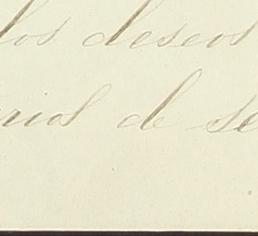 los deseos
de se